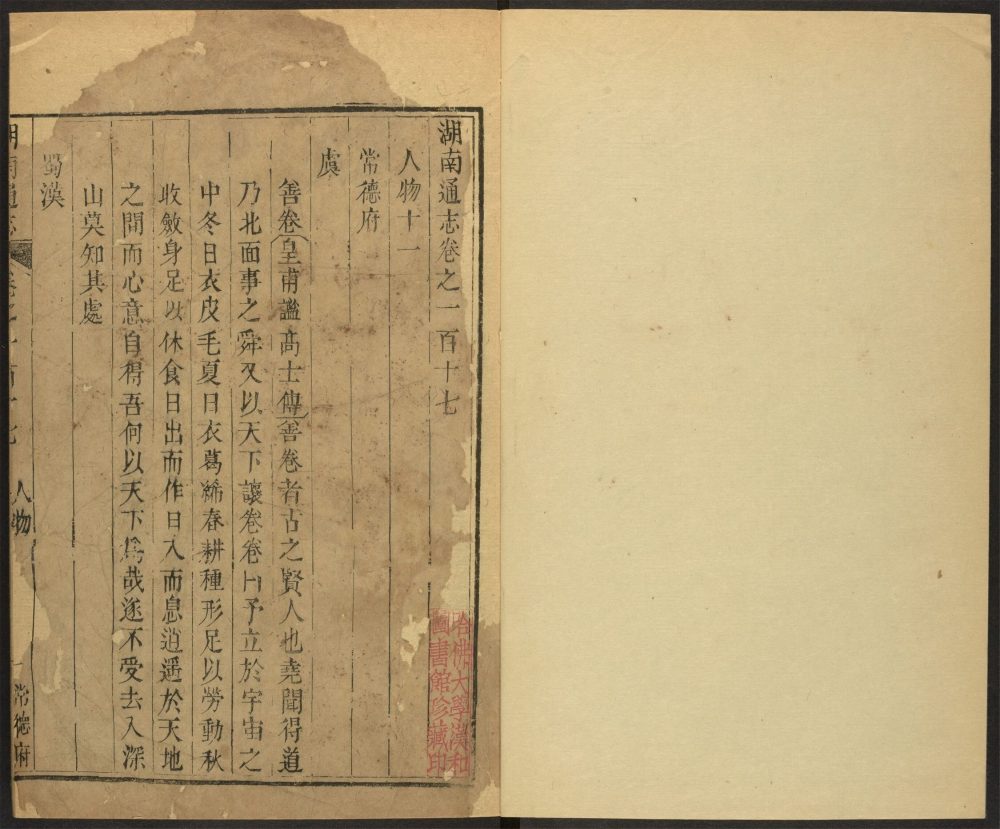 湖南通志卷之一百十七
人物十一
常德府
虞
善卷皇甫謐高士傳善卷者古之賢人也堯聞得道
乃北面事之舜又以天下讓卷卷曰予立於宇宙之
中冬日衣皮毛夏日衣葛絺春耕種形足以勞動秋
收斂身足以休食日出而作日入而息逍遥於天地
之間而心意自得吾何以天下爲哉遂不受去入深
山莫知其處
蜀漢
湖南通志 卷之一百十七 人物 一 常德府
哈佛大學漢和
圖書館珍藏印